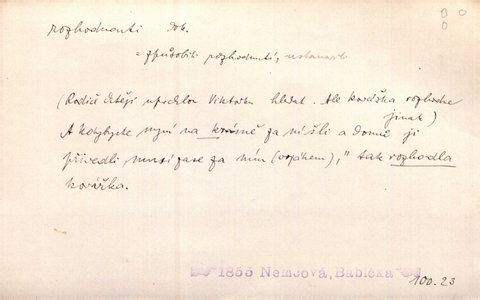 rozhodnouti dok.
= způsobiti rozhodnutí, ustanoviti
(Rodiče chtějí Viktorku hledat. Ale kovářka rozhodne
jinak)
A kdybyste nyní na krásně za ní šli a domů ji
přivedli musí zase za ním (vojákem)," tak rozhodla
kovářka.
1855 Němcová, Babička
100.23